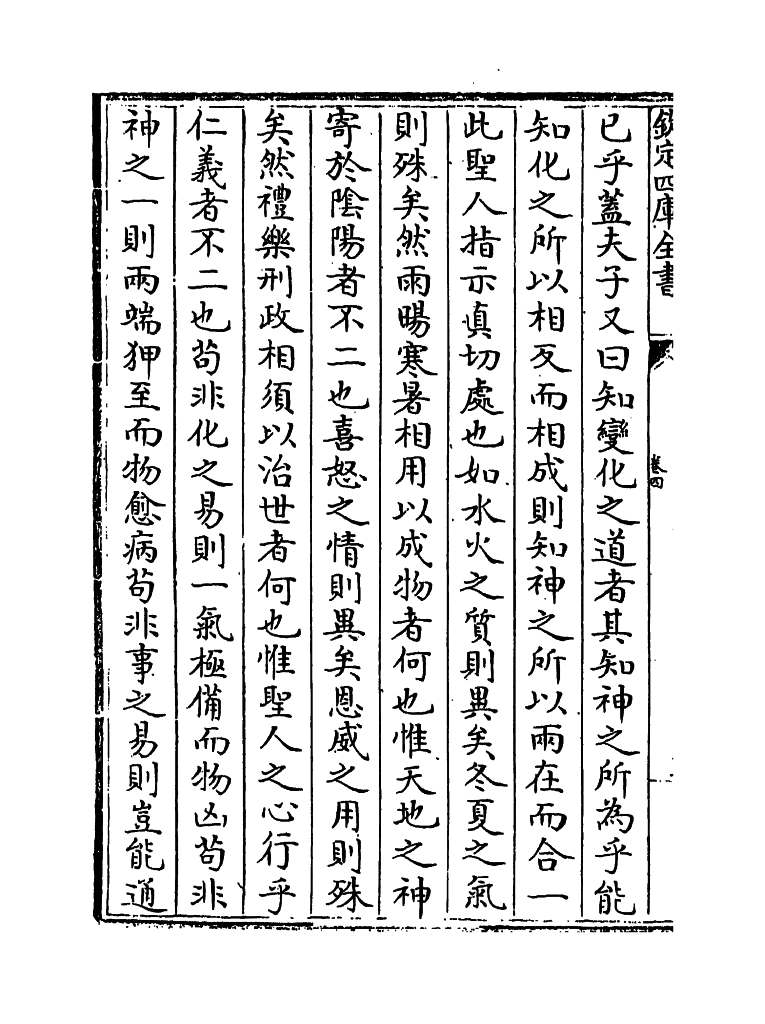 欽定四庫全書
卷四
已乎蓋夫子又曰知變化之道者其知神之所為乎能
知化之所以相反而相成則知神之所以兩在而合一
此聖人指示真切處也如水火之質則異矣冬夏之氣
則殊矣然雨暘寒暑相用以成物者何也惟天地之神
寄於陰陽者不二也喜怒之情則異矣恩威之用則殊
矣然禮樂刑政相須以治世者何也惟聖人之心行乎
仁義者不二也苟非化之易則一氣極備而物凶苟非
神之一則兩端狎至而物愈病苟非事之易則豈能通